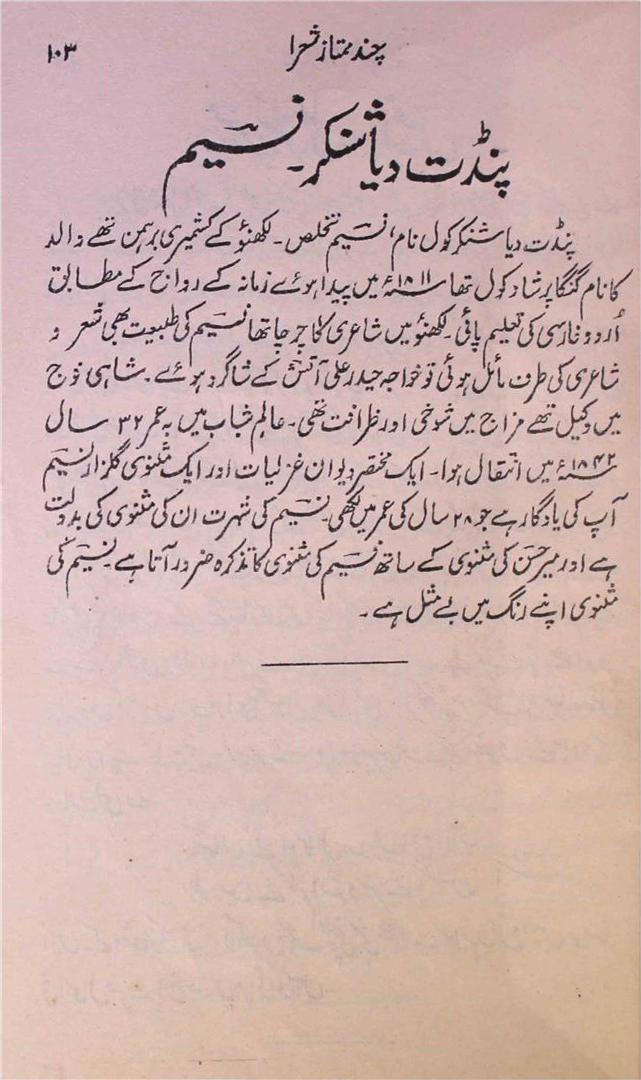 چند ممتاز شعرا ۱۰۳
پنڈت دیا شنکر۔ نسیم
پنڈت دیا شنکر کول نام، نسیم تخلص۔ لکھنؤ کے کشمیری برہمن تھے والد
کا نام گنگا پرشاد کول تھا ۱۸۱۱ء میں پیدا ہوئے زمانہ کے رواج کے مطابق
اُردو فارسی کی تعلیم پائی۔ لکھنؤ میں شاعری کا چرچا تھا نسیم کی طبیعت بھی شعر و
شاعری کی طرف مائل ہوئی تو خواجہ حیدر علی آتش کے شاگرد ہوئے۔ شاہی فوج
میں وکیل تھے مزاج میں شوخی اور ظرافت تھی۔ عالم شباب میں بہ عمر ۳۲ سال
۱۸۴۲ء میں انتقال ہوا۔ ایک مختصر دیوان غزلیات اور ایک مثنوی گلزار نسیم
آپ کی یادگار ہے جو ۲۸ سال کی عمر میں لکھی۔ نسیم کی شہرت ان کی مثنوی کی بدولت
ہے اور میر حسن کی مثنوی کے ساتھ نسیم کی مثنوی کا تذکرہ ضرور آتا ہے۔ نسیم کی
مثنوی اپنے رنگ میں بے مثل ہے۔